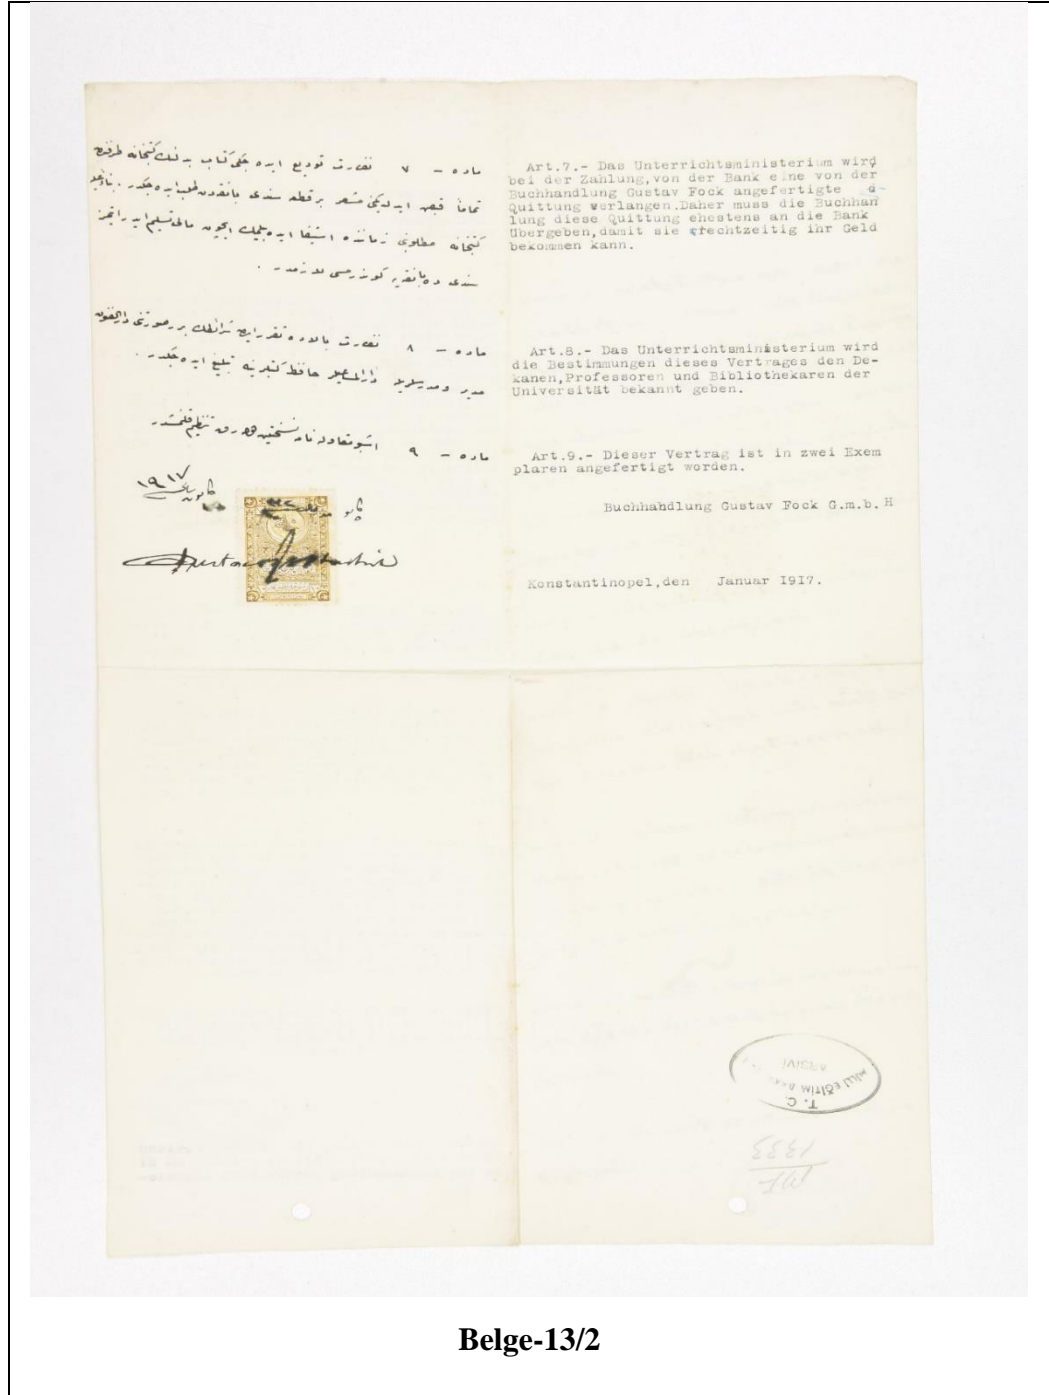 ماده – ٧ نظارت توديع ايده جكى كتاب بدلنك كتبخانه طرفندن
تماماً قبض ايدلديكى مشعر بر قطعه سندى بانقه‌دن طلب ايده جكدر . بناءً عليه
كتبخانه مطلوبنى زماننده استيفا ايده بيلمك ايچون مالى تسليم ايدر ايتمز
سندى ده بانقه‌يه كوندرمسى لازمدر .
ماده – ٨ نظارت بالاده تقرر ايدن شرائطك بر صورتنى دارالفنون
مدير ومدرسلريله حافظ كتبلرينه تبليغ ايده جكدر .
ماده – ٩ اشبو مقاوله نامه نسختين اوله رق تنظيم قلنمشدر
كانون ثانى ١٩١٧
Art.7.- Das Unterrichtsministerium wird
bei der Zahlung,von der Bank eine von der
Buchhandlung Gustav Fock angefertigte d-
Quittung verlangen.Daher muss die Buchhan
lung diese Quittung ehestens an die Bank
Übergeben,damit sie rechtzeitig ihr Geld
bekommen kann.
Art.8.- Das Unterrichtsministerium wird
die Bestimmungen dieses Vertrages den De-
kanen,Professoren und Bibliothekaren der
Universität bekannt geben.
Art.9.- Dieser Vertrag ist in zwei Exem
plaren angefertigt worden.
Buchhahdlung Gustav Fock G.m.b.H
Konstantinopel,den Januar I9I7.
T. C.
MİLLİ EĞİTİM
ARŞİVİ
1333
Belge-13/2